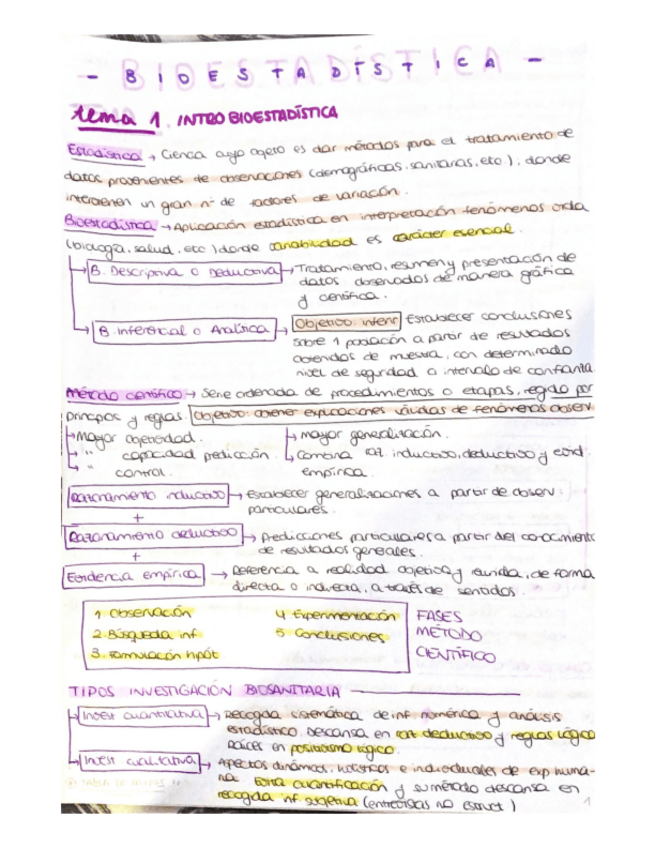 - BIOESTADÍSTICA -
tema 1. INTRO BIOESTADÍSTICA
Estadística → Ciencia cuyo objeto es dar métodos para el tratamiento de
datos provenientes de observaciones (demográficas, sanitarias, etc.), donde
intervienen un gran nº de factores de variación.
Bioestadística → Aplicación estadística en interpretación fenómenos cada
(biología, salud, etc) donde variabilidad es carácter esencial.
B. Descriptiva o Deductiva → Tratamiento, resumen y presentación de
datos observados de manera gráfica
y científica.
B. Inferencial o Analítica → Objetivo: inferir Establecer conclusiones
sobre 1 población a partir de resultados
obtenidos de muestra, con determinado
nivel de seguridad o intervalo de confianza
Método científico → Serie ordenada de procedimientos o etapas, regido por
principios y reglas. Objetivo: obtener explicaciones válidas de fenómenos observ
→ Mayor objetividad. → mayor generalización.
→ " capacidad predicción. → Combina raz. inductivo, deductivo y evid.
→ " control. empírica.
Razonamiento inductivo → Establecer generalizaciones a partir de observ.
particulares.
+
Razonamiento deductivo → Predicciones particulares a partir del conocimiento
de resultados generales.
+
Evidencia empírica → Referencia a realidad objetiva y reunida, de forma
directa o indirecta, a través de sentidos.
1. Observación 4. Experimentación FASES
2. Búsqueda inf 5. Conclusiones MÉTODO
3. Formulación hipót CIENTÍFICO
TIPOS INVESTIGACIÓN BIOSANITARIA
Invest cuantitativa → Recogida sistemática de inf. numérica y análisis
estadístico. Descansa en raz. deductivo y reglas lógica
Raíces en positivismo lógico.
Invest cualitativa → Aspectos dinámicos, holísticos e individuales de exp huma-
na. Evita cuantificación y su método descansa en
recogida inf subjetiva (entrevistas no estruct.)
1